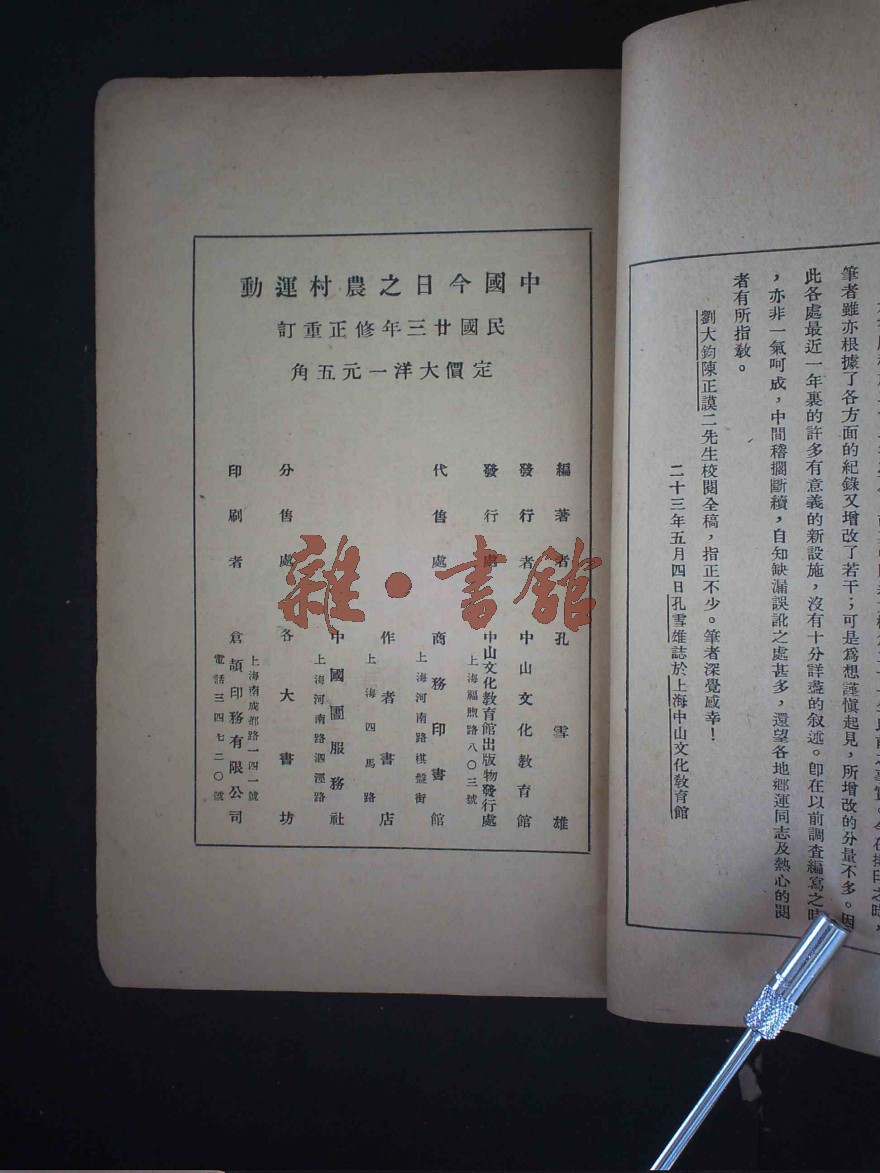 筆者雖亦根據了各方面的紀錄又增改了若干；可是爲想謹愼起見，所增改的分量不多。因
此各處最近一年裏的許多有意義的新設施，沒有十分詳盡的叙述。卽在以前調査編寫之時
，亦非一氣呵成，中間稽擱斷續，自知缺漏誤訛之處甚多，還望各地鄉運同志及熱心的閱
者有所指敎。
劉大鈞陳正謨二先生校閱全稿，指正不少。筆者深覺感幸！
二十三年五月四日孔雪雄誌於上海中山文化敎育館
中國今日之農村運動
民國廿三年修正重訂
定價大洋一元五角
編著者 孔雪雄
發行者 中山文化敎育館
發行處 中山文化敎育館出版物發行處
上海福煦路八〇三號
代售處 商務印書館
上海河南路棋盤街
作者書店
上海四馬路
中國圖服務社
上海河南路泗涇路
分售處 各大書坊
印刷者 倉頡印務有限公司
上海南成都路一四一號
電話三四七二〇號
雜·書館